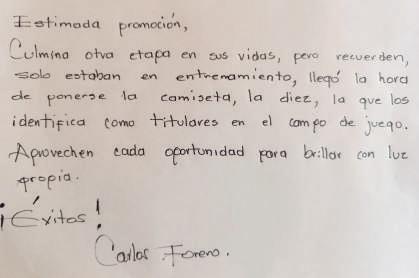 Estimada promoción,
Culmina otra etapa en sus vidas, pero recuerden,
solo estaban en entrenamiento, llegó la hora
de ponerse la camiseta, la diez, la que los
identifica como titulares en el campo de juego.
Aprovechen cada oportunidad para brillar con luz
propia.
¡Éxitos!
Carlos Forero.